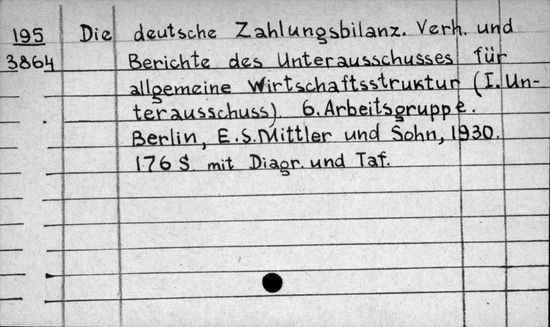 195 Die deutsche Zahlungsbilanz. Verh. und
3864 Berichte des Unterausschusses für
allgemeine Wirtschaftsstruktur (I. Un-
terausschuss). 6. Arbeitsgruppe.
Berlin, E.S. Mittler und Sohn, 1930.
176 S. mit Diagr. und Taf.